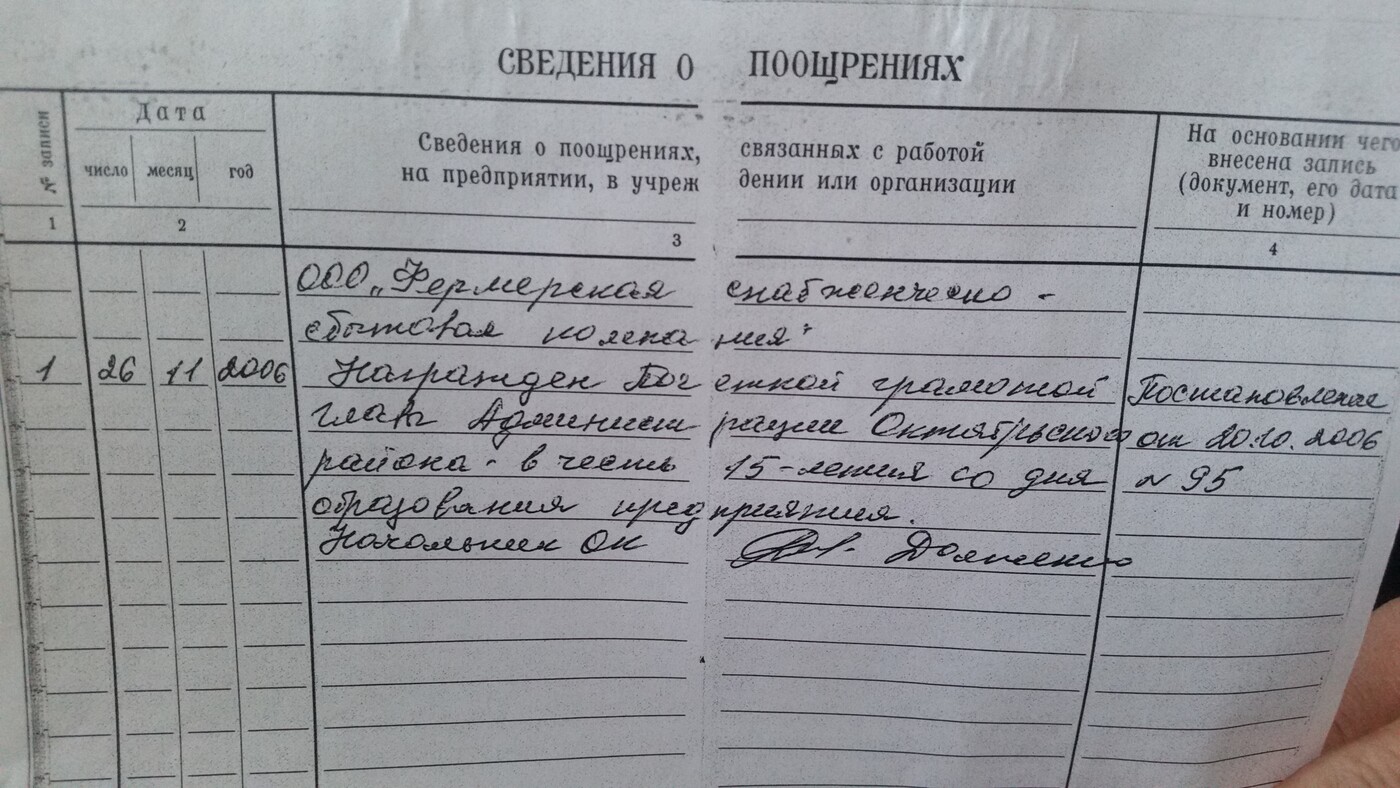 СВЕДЕНИЯ О ПООЩРЕНИЯХ
№ записи
Дата
число месяц год
Сведения о поощрениях, связанных с работой
на предприятии, в учреж дении или организации
На основании чего
внесена запись
(документ, его дата
и номер)
1 2 3 4
ООО „Фермерская снабженческо -
сбытовая компа ния"
1 26 11 2006 Награжден Поч етной грамотой Постановление
главы Админист рации Октябрьского от 20.10.2006
района - в честь 15-летия со дня № 95
образования пред приятия.
Начальник ОК